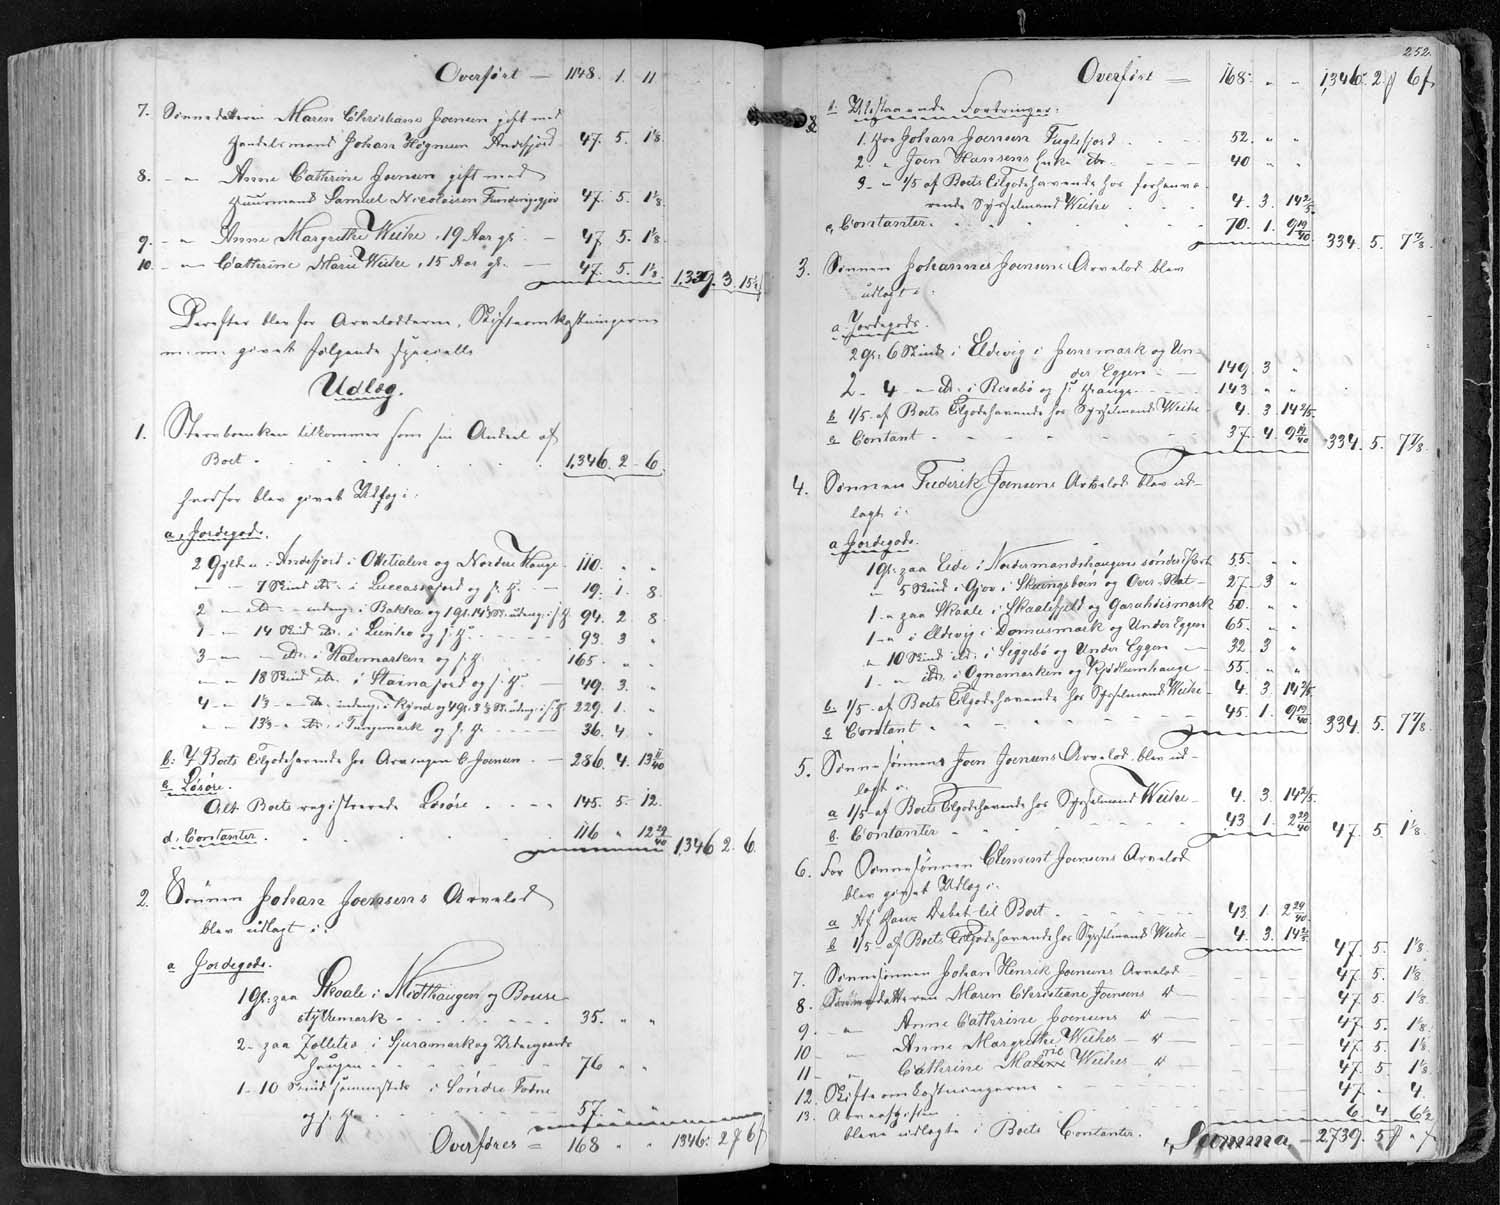 Overført — 1148. 1. 11
7. Sønnedatteren Maren Christiane Joensen gift med
Handelsmand Johan Høgnesen Andefjord 47. 5. 1⅛.
8. — " — Anne Cathrine Joensen gift med
Huusmand Samuel Nicolaisen Fundingsgjov 47. 5. 1⅛.
9. — " — Anne Margrethe Weihe, 19 Aar gl. — 47. 5. 1⅛.
10. — " — Cathrine Marie Weihe, 15 Aar gl. — 47. 5. 1⅛. 1,339. 3. 15½
Derefter blev for Arvelodderne, Skifteomkostningerne
m. m. givet følgende specielle
Udlæg.
1. Stervboenken tilkommer som sin Andeel af
Boet . . . 1,346. 2 - 6.
hvorfor blev givet Udlæg i:
a, Jordegods.
2 Gylden i Andefjord i Ottetialen og Nordre Hauge 110. " "
" — 7 Skind do. i Luccassafjord og f. H. — 19. 1. 8.
2 — do. — i Bakka og 1 Gl. 14 Sk. i f. H. 94. 2 8
1 — 14 Skind do. i og f. H. 93. 3 "
3 — " — do. i Halvmarken og f. H. 165. " "
" — 18 Skind do. i Stainafjord og f. H. — 49. 3. "
4 — 1⅓ — do. i Kynd og 4 Gl. Sk. i f. H. 229. 1. "
" — 13⅓ — do. i Tungemark og f. H. — 36. 4 "
b: Boets Tilgodehavende hos Arvingen C. Joensen — 286. 4. 13 11/40
c Løsøre.
Alt Boets registrerede Løsøre . . . 145. 5. 12.
d. Contanter. . . . 116 " 12 29/40 1,346 2. 6.
2. Sønnen Johan Joensens Arvelod
blev udlagt i:
a Jordegods.
1 Gl. zaa Skaale i Midthaugen og Bouse-
stykkemark . . . 35. " "
2 - zaa i Sjuramark og Udnorgaards
haugen . . . 76 " "
1 - 10 Skind sammesteds i Söndre
og f. H. . . . 57. " "
Overføres = 168 " " 1346: 2 ß 6 f
252.
Overført — 168 - " - 1,346. 2 ß 6 f.
b. Udestaaende Fordringer:
1. hos Johan Joensen Fuglefjord . . . 52. " "
2. " Joen Hansens Enke do. — 40 " "
3 - " 1/5 af Boets Tilgodehavende hos forhenvæ-
rende Sysselmand Weihe . . . 4. 3. 14 2/5.
c, Contanter. . . . 70. 1. 9 19/40 334. 5. 7⅞.
3. Sønnen Johannes Joensens Arvelod blev
udlagt i:
a. Jordegods.
2 Gl. 6 Skind i Eldevig i Jensmark og Un-
der Eggen — 149. 3 "
2 - 4 — do. i Risabø og f. Hauge — 143. " "
b 1/5 af Boets Tilgodehavende hos Sysselmand Weihe — 4. 3. 14 2/5.
c Contant — 37. 4. 9 19/40 334. 5. 7⅞.
4. Sønnen Frederik Joensens Arvelod blev ud-
lagt i:
a Jordegods.
1 Gl. zaa Eide i Nordermandshaugens søndre Part 55. " "
" 5 Skind i Gjov i Skuingsboin og Over-Rat — 27. 3 "
1 - " zaa Skaale i Skaalefjeld og Garahöismark 50. " "
1 - " i Eldevig i Domusmark og Under Eggen 65. " "
" 10 Skind do. i Siggebö og Under Eggen — 32 3 "
1 - " do. i Ognamarken og Kjödlumhauge — 55. " "
b. 1/5 af Boets Tilgodehavende hos Sysselmand Weihe — 4. 3. 14 2/5.
c Contant — 45. 1. 9 19/40 334. 5. 7⅞.
5. Sønnesønnens Joen Joensens Arvelod blev ud-
lagt i:
a 1/5 af Boets Tilgodehavende hos Sysselmand Weihe — 4. 3. 14 2/5.
b. Contanter . . . 43. 1. 2 29/40 47. 5. 1⅛.
6. For Sønnesønnen Clement Joensens Arvelod
blev givet Udlæg i:
a Af hans Debet til Boet . . . 43. 1. 2 29/40
b 1/5 af Boets Tilgodehavende hos Sysselmand Weihe — 4. 3. 14 2/5. 47. 5. 1⅛.
7. Sønnesønnen Johan Henrik Joensens Arvelod — 47. 5. 1⅛.
8. Sønnedatteren Maren Christiane Joensens do — 47. 5. 1⅛.
9. — " — Anne Cathrine Joensens do — 47. 5. 1⅛.
10 — " Anne Margrethe Weihes — do — 47. 5. 1⅛.
11 — " Cathrine Marie Weihes do 47. 5 1⅛.
12. Skifteomkostningerne — 47 - 4.
13. Arveafgiften . . . 6. 4. 6½
bleve udlagte i Boets Contanter.
Summa — 2739. 5 ß " f